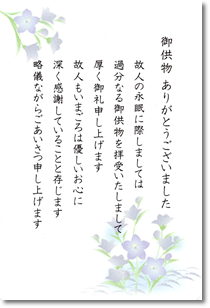 御供物 ありがとうございました
故人の永眠に際しましては
過分なる御供物を拝受いたしまして
厚く御礼申し上げます
故人もいまごろは優しいお心に
深く感謝していることと存じます
略儀ながらごあいさつ申し上げます